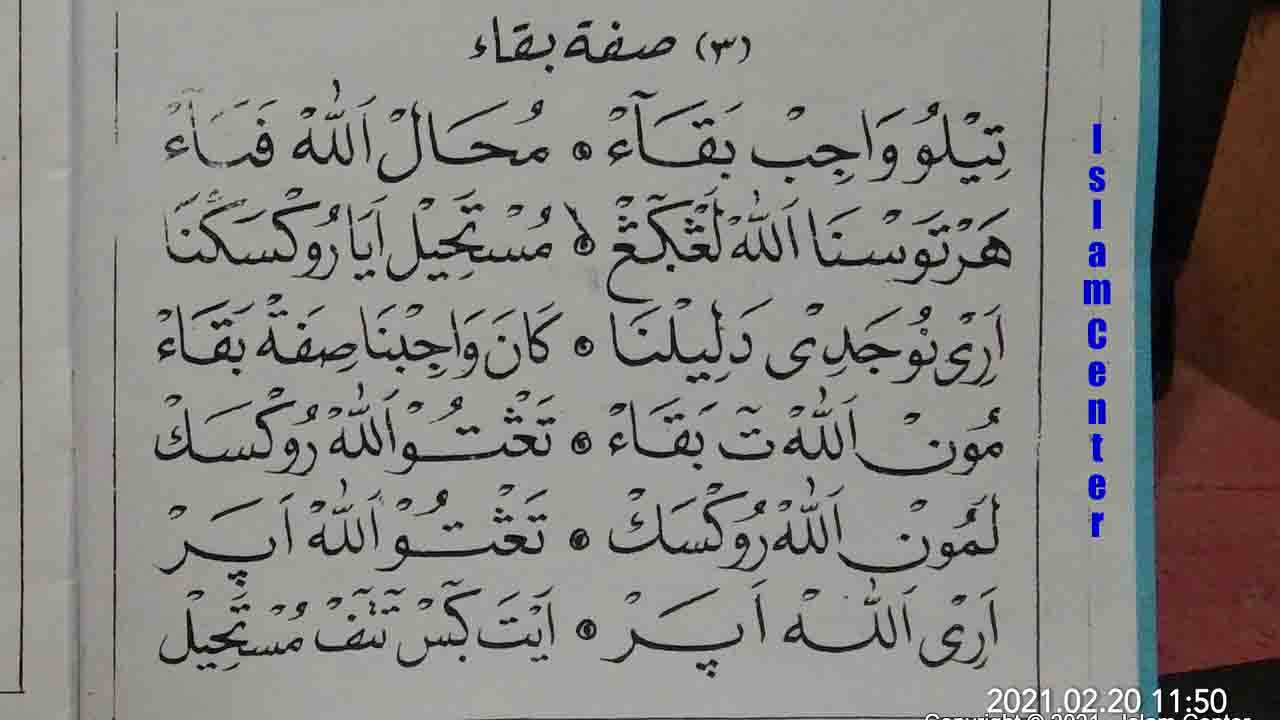 (٣) صفة بقاء
تِيْلُو وَاجِبْ بَقَآءْ ۞ مُحَالْ اَللّٰهْ فَنَآءْ
هَرْتَوْسْنَا اَللّٰهْ لَڠْڮٓڠْ ۞ مُسْتَحِيْلْ اَيَا رُوْكْسَكْنَا
اَرِيْ نُوْجَدِيْ دَلِيْلْنَا ۞ كَانَ وَاجِبْنَا صِفَةْ بَقَاءْ
مُوْنْ اَللّٰهْ تٓ بَقَاءْ ۞ تَڠْتُوْ اَللّٰهْ رُوْكْسَكْ
لَمُوْنْ اَللّٰهْ رُوْكْسَكْ ۞ تَڠْتُوْ اَللّٰهْ اَپَرْ
اَرِيْ اَللّٰهْ اَپَرْ ۞ اَيْتَ مُسْتَحِيْلْ
Islam Center
2021.02.20 11:50